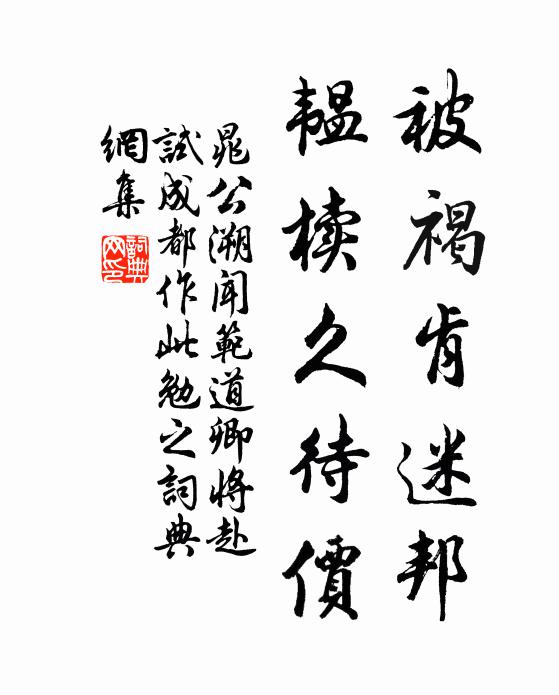 被褐肯迷邦
韞櫝久待價
晁公溯聞範道卿將赴
試成都作此勉之詞典
網集
詞典網印